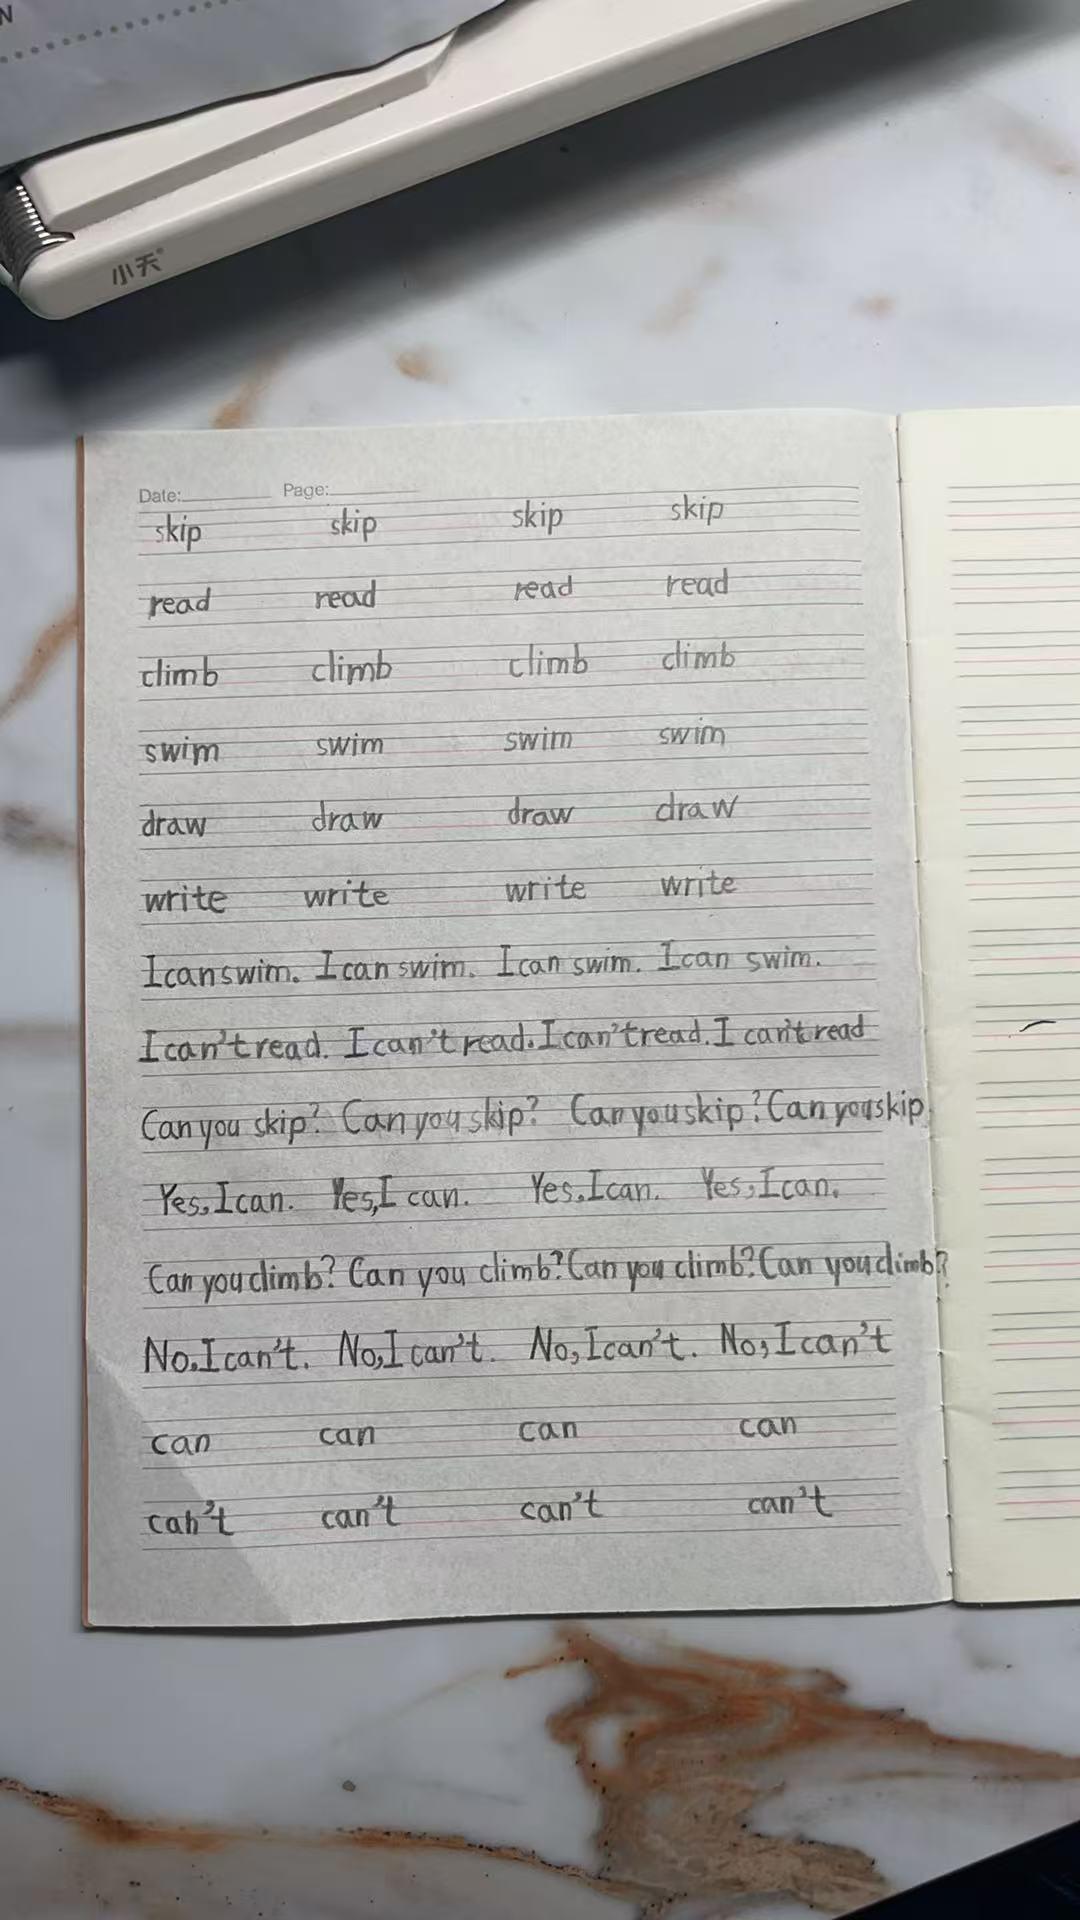 N
小天
Date: Page:
skip skip skip skip
read read read read
climb climb climb climb
swim swim swim swim
draw draw draw draw
write write write write
I can swim. I can swim. I can swim. I can swim.
I can't read. I can't read. I can't read. I can't read
Can you skip? Can you skip? Can you skip? Can you skip
Yes, I can. Yes, I can. Yes, I can. Yes, I can.
Can you climb? Can you climb? Can you climb? Can you climb?
No, I can't. No, I can't. No, I can't. No, I can't
can can can can
can't can't can't can't